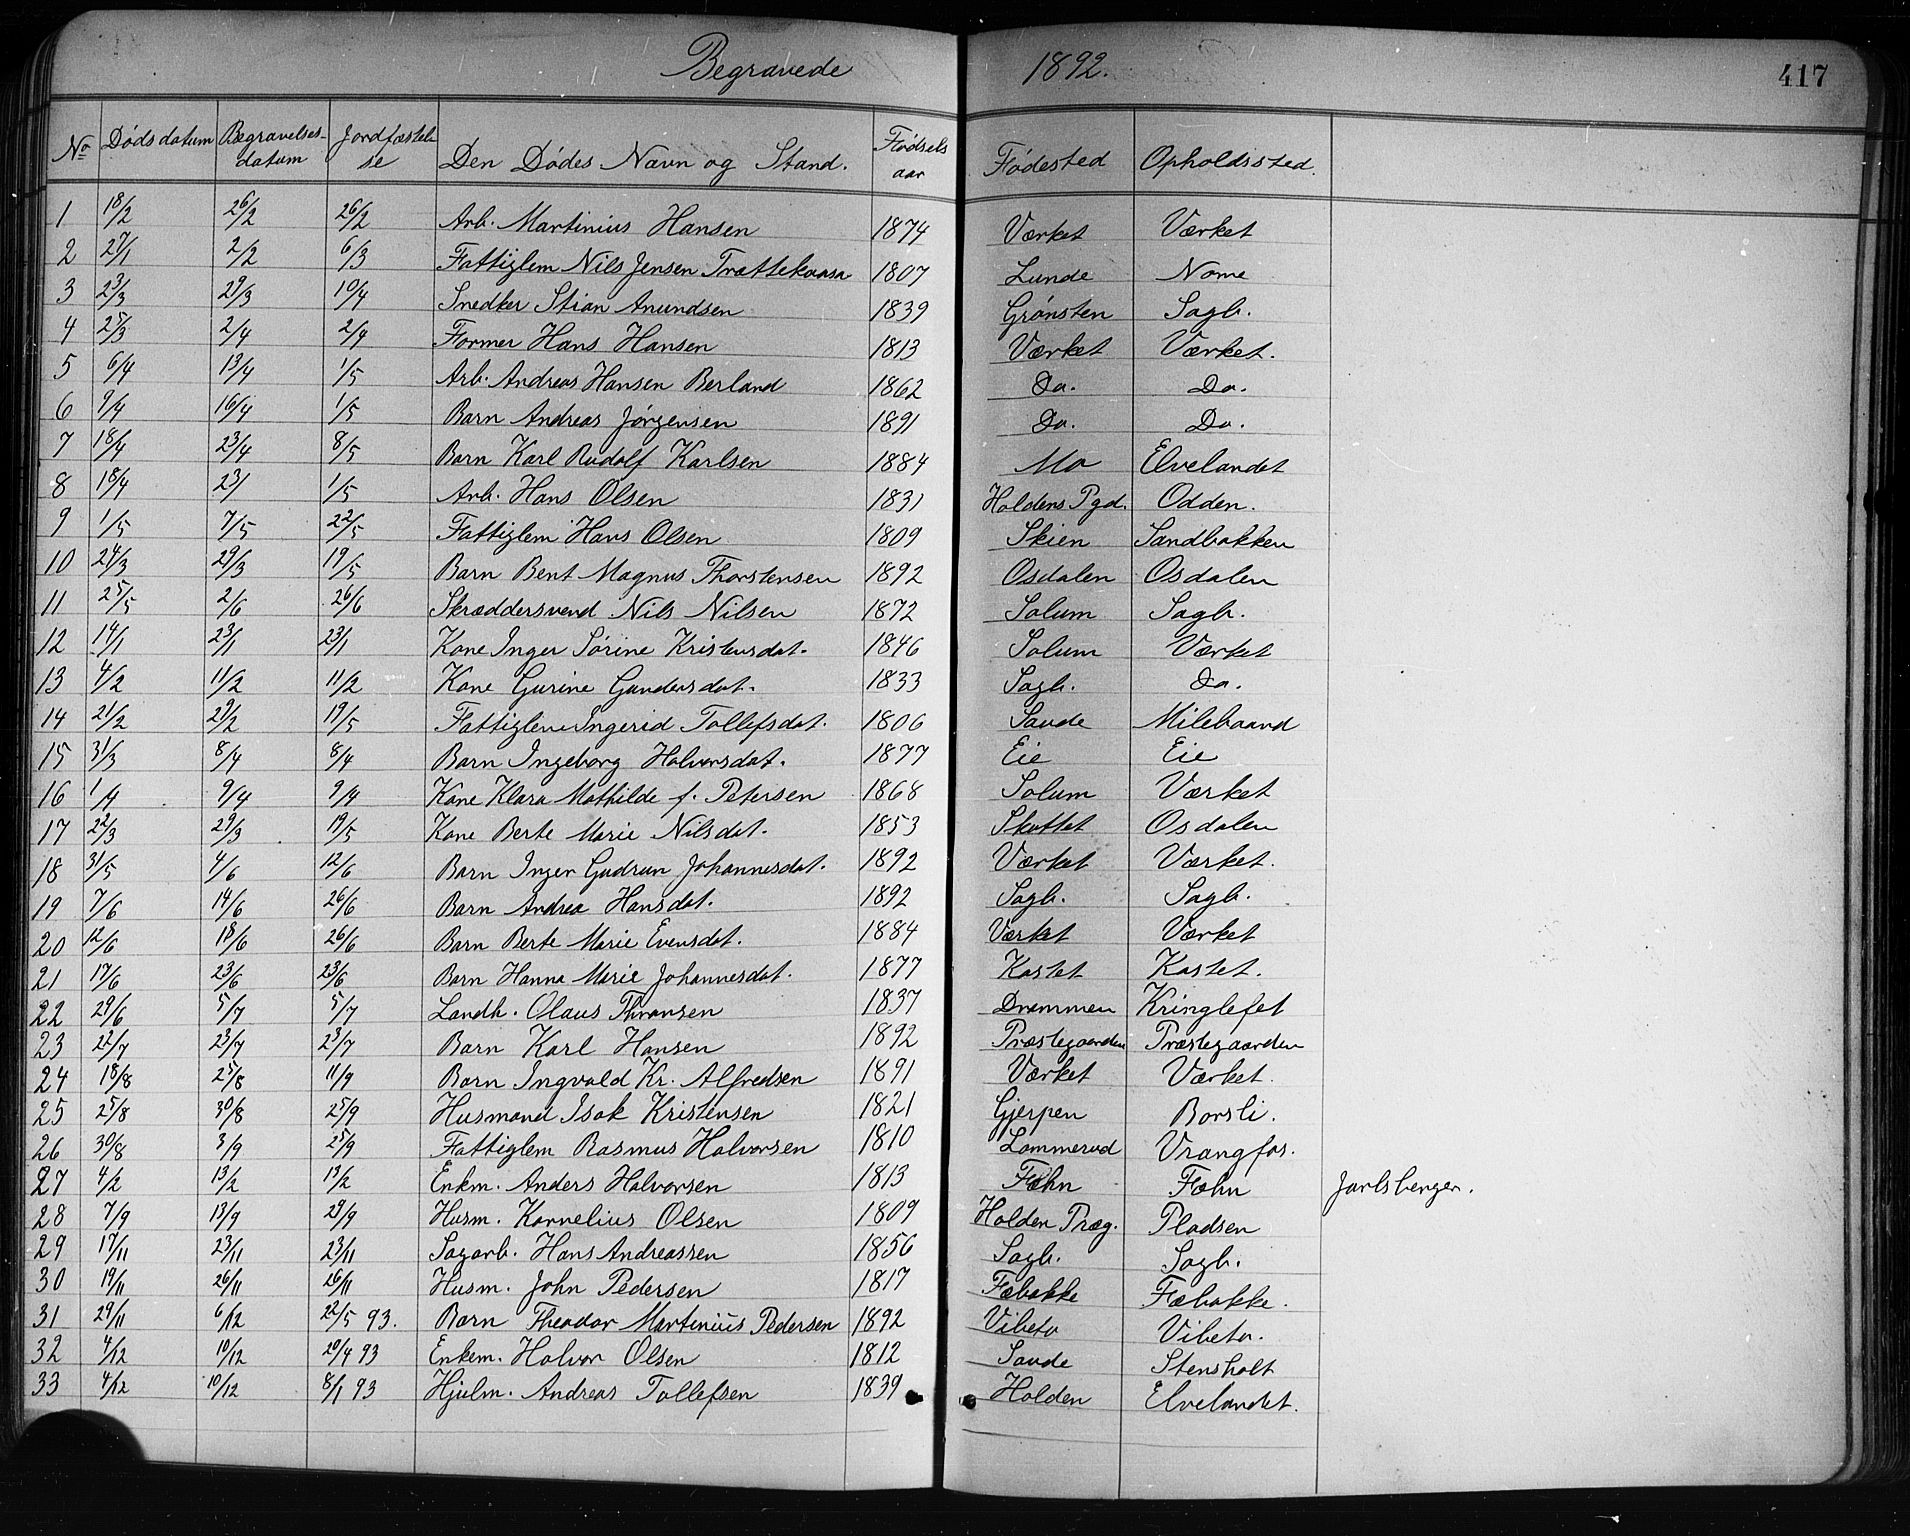 Begravede 1892. 417
No Dødsdatum Begravelses-datum Jordfæstelse Den Dødes Navn og Stand. Fødsels aar Fødested Opholdssted.
1 18/2 26/2 26/2 Arb. Martinius Hansen 1874 Værket Værket
2 27/1 2/2 6/3 Fattiglem Nils Jensen 1807 Lunde Nome
3 23/3 29/3 10/4 Snedker Stian Amundsen 1839 Grønsten Sagb.
4 25/3 2/4 2/4 Former Hans Hansen 1813 Værket Værket.
5 6/4 13/4 1/5 Arb. Andreas Hansen Berland 1862 Do. Do.
6 9/4 16/4 1/5 Barn Andreas Jørgensen 1891 Do. Do.
7 18/4 23/4 8/5 Barn Karl Rudolf Karlsen 1884 Mo Elvelandet
8 18/4 23/ 1/5 Arb. Hans Olsen 1831 Holdens Pgd. Odden.
9 1/5 7/5 22/5 Fattiglem Hans Olsen 1809 Skien Sandbakken
10 24/3 29/3 19/5 Barn Bent Magnus Thorstensen 1892 Osdalen Osdalen
11 25/5 2/6 26/6 Skræddersvend Nils Nilsen 1872 Solum Sagb.
12 14/1 23/1 23/1 Kone Inger Sørine Kristensdat. 1846 Solum Værket
13 4/2 11/2 11/2 Kone Gurine Gundersdat. 1833 Sagb. Do.
14 21/2 29/2 19/5 Fattiglem Ingerid Tollefsdat. 1806 Saude Milebaand
15 31/3 8/4 8/4 Barn Ingeborg Halvorsdat. 1877 Eie Eie
16 1/4 9/4 9/4 Kone Klara Mathilde f. Petersen 1868 Solum Værket
17 22/3 29/3 19/5 Kone Berte Marie Nilsdat. 1853 Skottet Osdalen
18 31/5 4/6 12/6 Barn Inger Gudrun Johannesdat. 1892 Værket Værket.
19 7/6 14/6 26/6 Barn Andrea Hansdat. 1892 Sagb. Sagb.
20 12/6 18/6 26/6 Barn Berte Marie Evensdat. 1884 Værket Værket
21 17/6 23/6 23/6 Barn Hanna Marie Johannesdat. 1877 Kastet Kastet.
22 29/6 5/7 5/7 Landh. Olaus Thronsen 1837 Drammen Kringlefet
23 22/7 23/7 23/7 Barn Karl Hansen 1892 Præstegaarden Præstegaarden
24 18/8 25/8 11/9 Barn Ingvald Kr. Alfredsen 1891 Værket Værket.
25 25/8 30/8 25/9 Husmand Isak Kristensen 1821 Gjerpen Borsli.
26 30/8 3/9 25/9 Fattiglem Rasmus Halvorsen 1810 Lommerud Vrangfos.
27 4/2 13/2 13/2 Enkm. Anders Halvorsen 1813 Fæhn Fæhn Jarlsbergen.
28 7/9 13/9 29/9 Husm. Kornelius Olsen 1809 Holden Præg. Pladsen
29 17/11 23/11 23/11 Sagarb. Hans Andreassen 1856 Sagb. Sagb.
30 19/11 26/11 26/11 Husm. John Pedersen 1817 Fæbakke Fæbakke.
31 29/11 6/12 22/5 93. Barn Theodor Martinius Pedersen 1892 Vibeto Vibeto.
32 4/12 10/12 20/4 93 Enkem. Halvor Olsen 1812 Saude Stensholt
33 4/12 10/12 8/1 93 Hjulm. Andreas Tollefsen 1839 Holden Elvelandet.